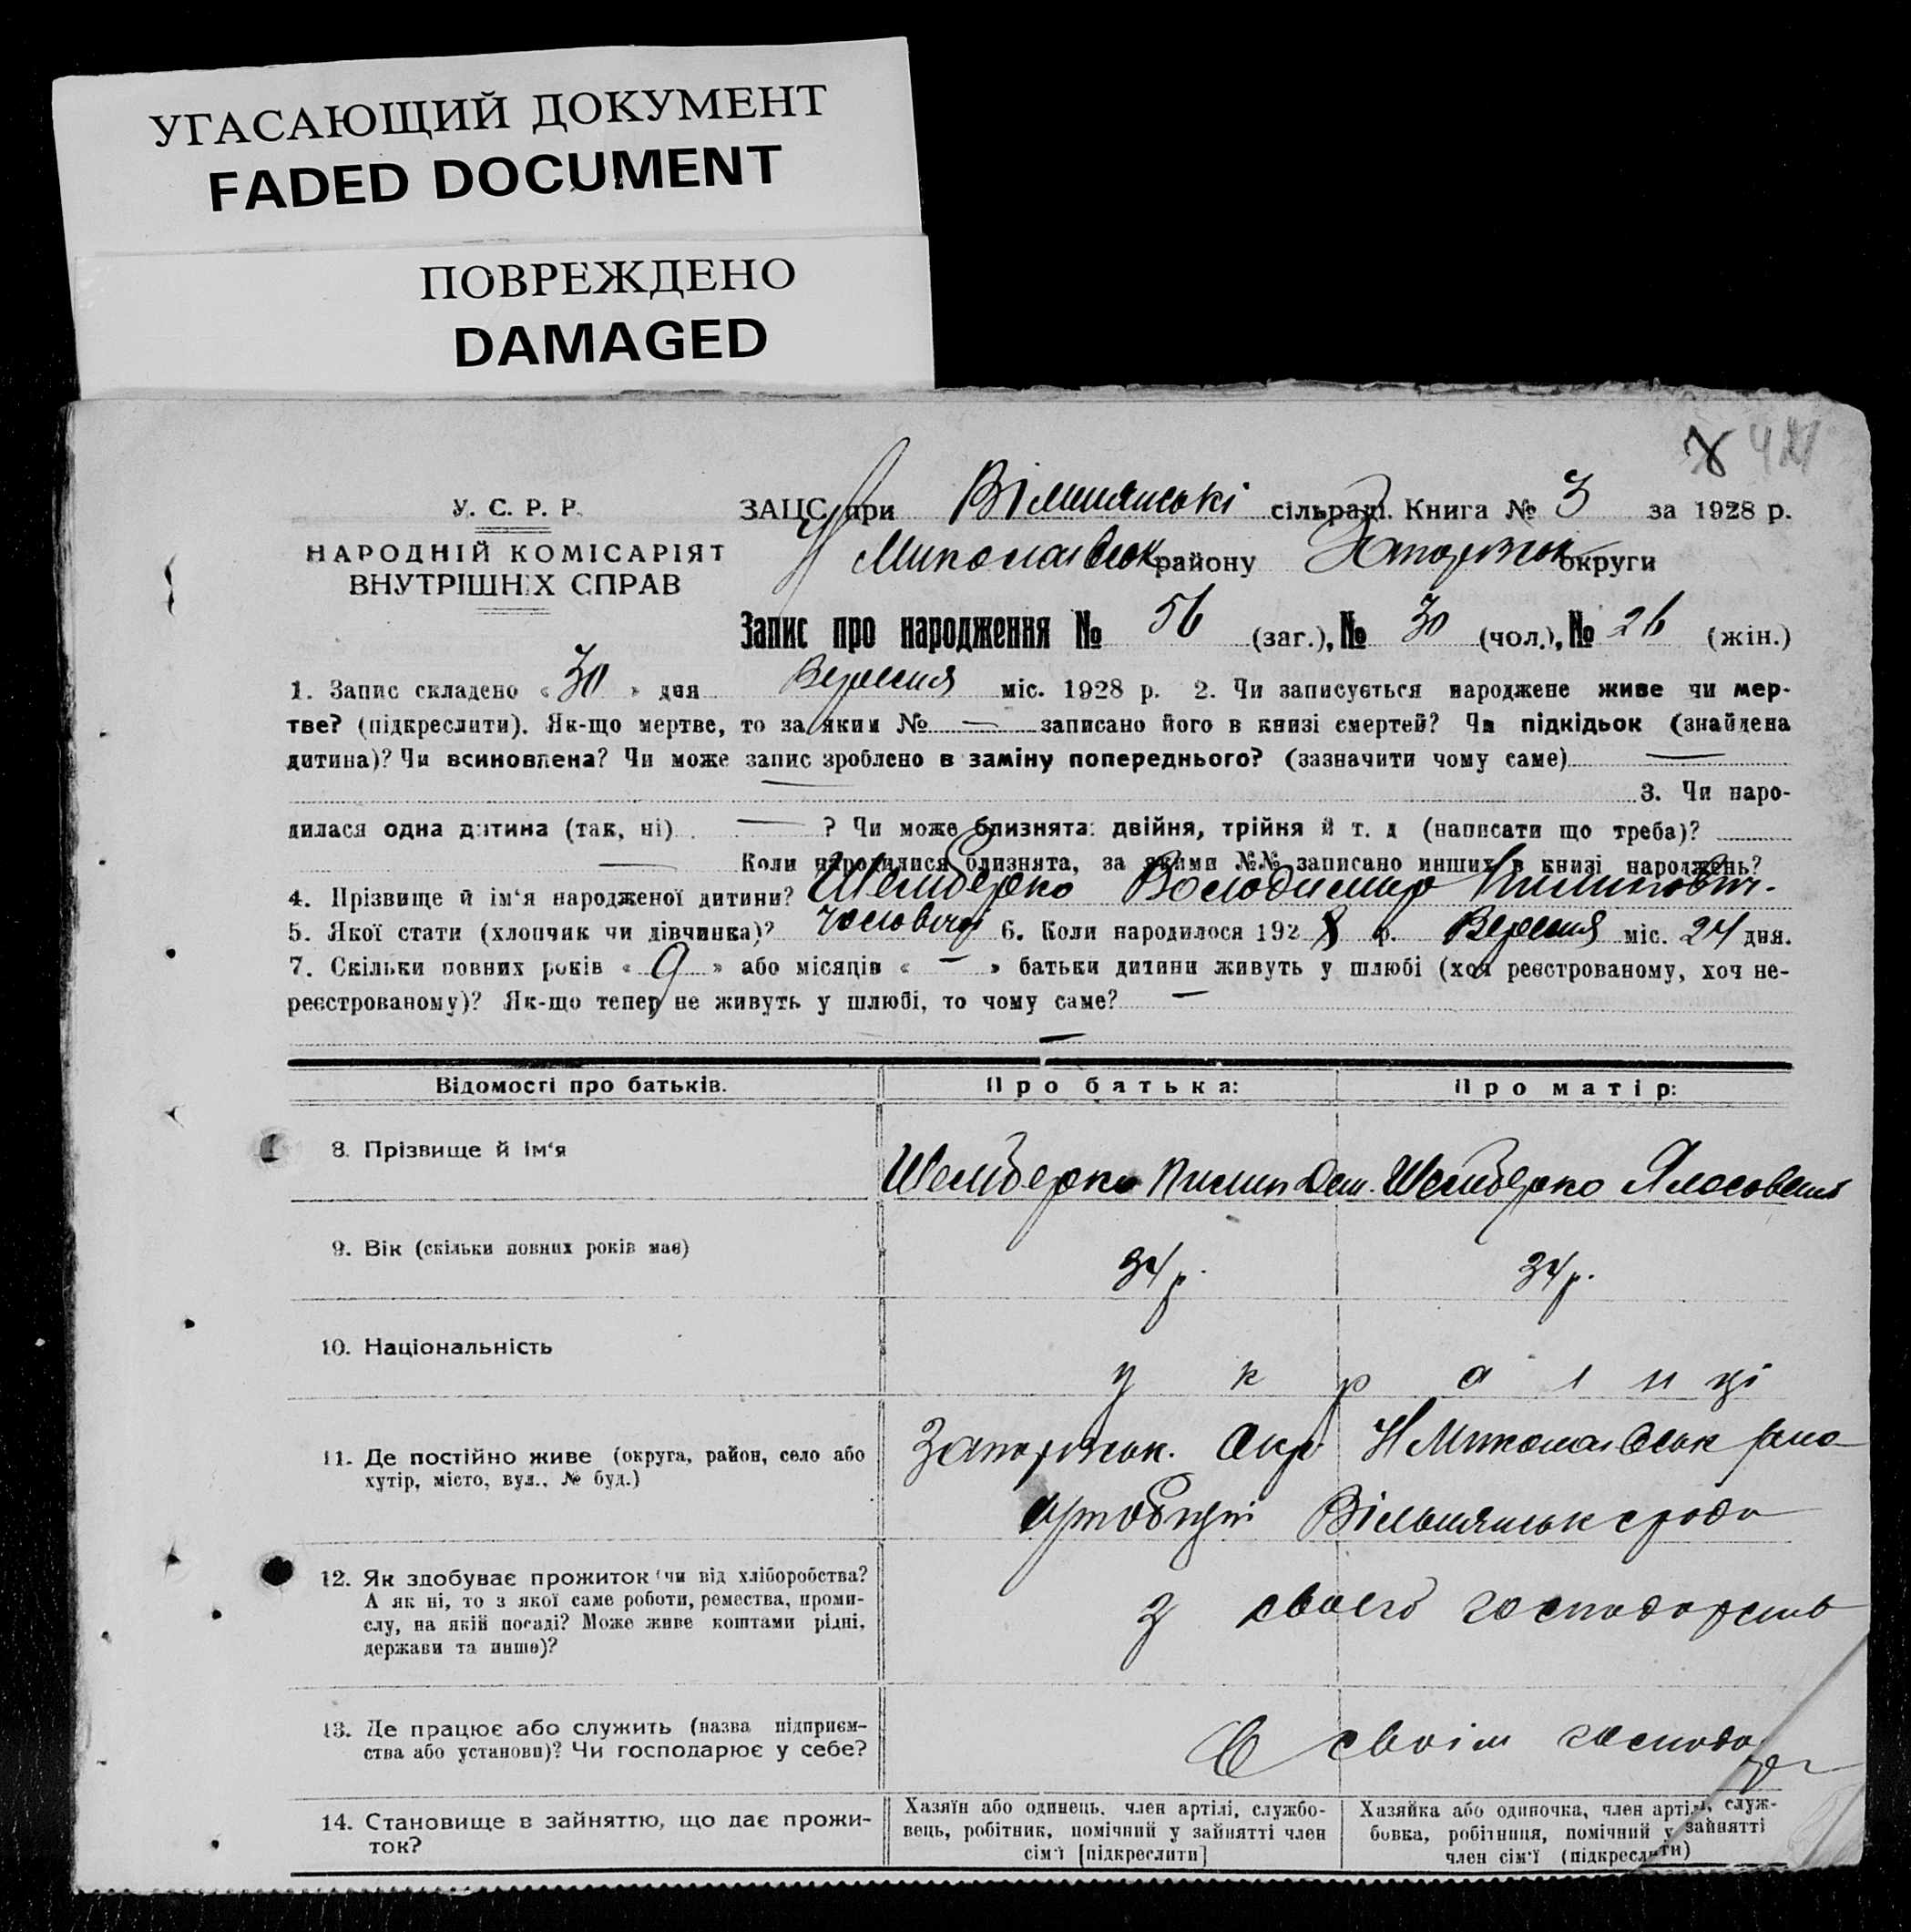 УГАСАЮЩИЙ ДОКУМЕНТ
FADED DOCUMENT
ПОВРЕЖДЕНО
DAMAGED
У. С. Р. Р.
НАРОДНІЙ КОМІСАРІЯТ
ВНУТРІШНІХ СПРАВ
ЗАЦС при Вільнянські сільраді. Книга № 3 за 1928 р.
Н Миколаївськ району Запоріжск округи
Запис про народження № 56 (заг.), № 30 (чол.), № 26 (жін.)
1. Запис складено « 30 » дня Вересня міс. 1928 р. 2. Чи записується народжене живе чи мер-
тве? (підкреслити). Як-що мертве, то за яким № — записано його в книзі смертей? Чи підкідьок (знайдена
дитина)? Чи всиновлена? Чи може запис зроблено в заміну попереднього? (зазначити чому саме) —
— 3. Чи наро-
дилася одна дитина (так, ні) — ? Чи може близнята: двійня, трійня й т. д (написати що треба)?
— Коли народилися близнята, за якими №№ записано инших в книзі народжень?
4. Прізвище й ім‘я народженої дитини? Шемберко Володимир Пилипович.
5. Якої стати (хлопчик чи дівчинка)? Чоловічої 6. Коли народилося 1928 р. Вересня міс. 24 дня.
7. Скільки повних років « 9 » або місяців « — » батьки дитини живуть у шлюбі (хоч реєстрованому, хоч не-
реєстрованому)? Як-що тепер не живуть у шлюбі, то чому саме? —
—
Відомості про батьків. Про батька: Про матір:
8. Прізвище й ім‘я Шемберко Пилип Дем. Шемберко
9. Вік (скільки повних років має) 34 р. 34 р.
10. Національність україн ці
11. Де постійно живе (округа, район, село або
хутір, місто, вул., № буд.)
Запоріжськ. Окр Н Миколаївськ
Вільнянськ
12. Як здобуває прожиток (чи від хліборобства?
А як ні, то з якої саме роботи, ремества, проми-
слу, на якій посаді? Може живе коштами рідні,
держави та инше)?
З свого господарств
13. Де працює або служить (назва підприєм-
ства або установи)? Чи господарює у себе?
В своім господар
14. Становище в зайняттю, що дає прожи-
ток?
Хазяїн або одинець, член артілі, службо-
вець, робітник, помічний у зайнятті член
сім‘ї [підкреслити]
Хазяйка або одиночка, член артілі, служ-
бовка, робітниця, помічний у зайнятті
член сім‘ї (підкреслити)